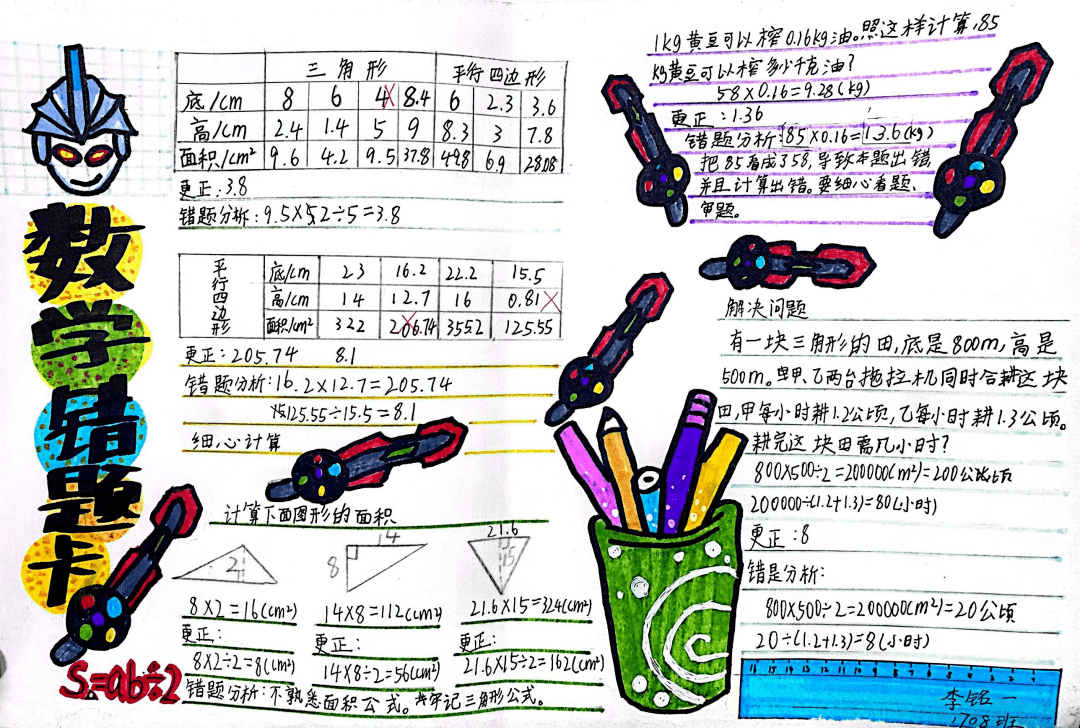 数学错题卡
三角形 平行四边形
底/cm 8 6 4 8.4 6 2.3 3.6
高/cm 2.4 1.4 5 9 8.3 3 7.8
面积/cm² 9.6 4.2 9.5 37.8 49.8 6.9 28.08
更正:3.8
错题分析:9.5×5.2÷5=3.8
平行四边形
底/cm 23 16.2 22.2 15.5
高/cm 14 12.7 16 0.81
面积/cm² 322 206.74 3552 125.55
更正:205.74 8.1
错题分析:16.2×12.7=205.74
125.55÷15.5=8.1
细心计算
计算下面图形的面积
2
14
8
21.6
15
8×2=16(cm²) 14×8=112(cm²) 21.6×15=324(cm²)
更正: 更正: 更正:
8×2÷2=8(cm²) 14×8÷2=56(cm²) 21.6×15÷2=162(cm²)
错题分析:不熟悉面积公式。牢记三角形公式。
S=ab÷2
1kg黄豆可以榨0.16kg油。照这样计算,85
kg黄豆可以榨多少千克油?
58×0.16=9.28(kg)
更正:1.36
错题分析:85×0.16=13.6(kg)
把85看成358,导致本题出错
并且计算出错。要细心看题、
审题。
解决问题
有一块三角形的田,底是800m,高是
500m。甲、乙两台拖拉机同时合耕这块
田,甲每小时耕1.2公顷,乙每小时耕1.3公顷。
耕完这块田需几小时?
800×500÷2=200000(m²)=200公顷
200000÷(1.2+1.3)=80(小时)
更正:8
错是分析:
800×500÷2=200000(m²)=20公顷
20÷(1.2+1.3)=8(小时)
李铭一
1708班